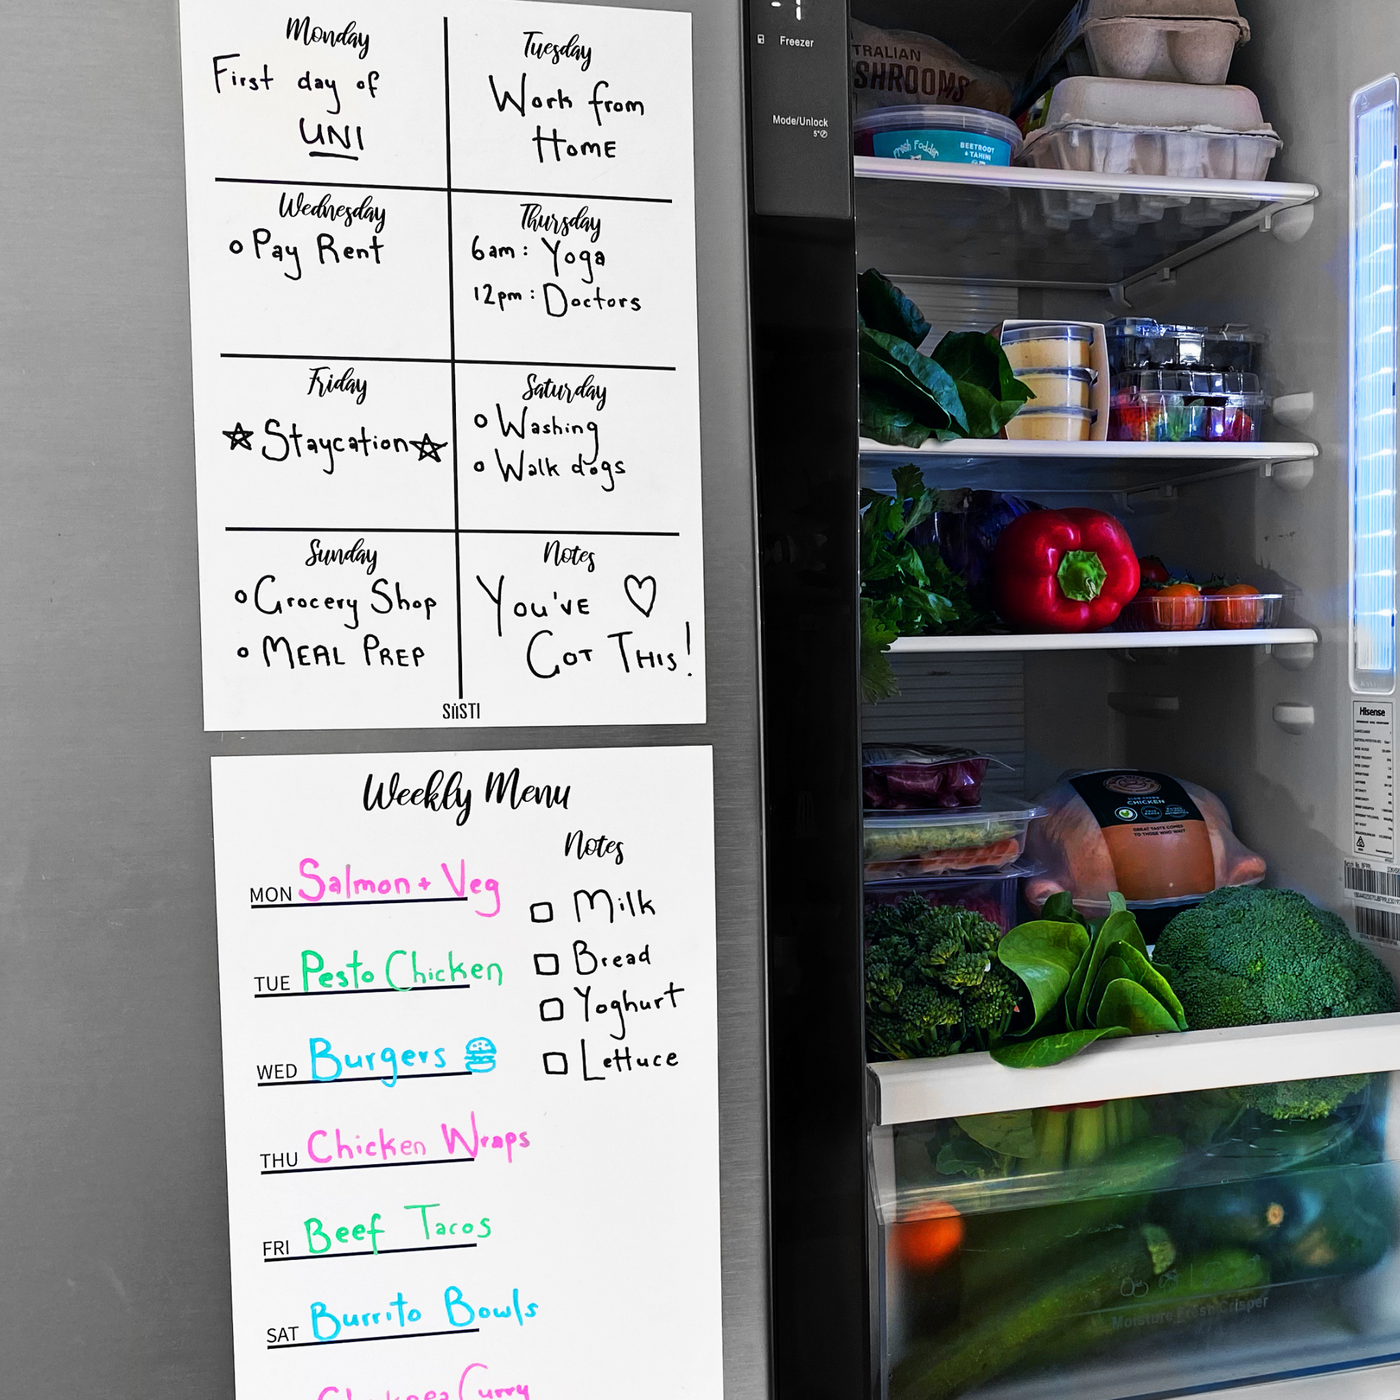 Monday
First day of
UNI
Tuesday
Work from
HOME
Wednesday
Pay Rent
Thursday
6am: Yoga
12pm: Doctors
Friday
Staycation
Saturday
Washing
Walk dogs
Sunday
Grocery Shop
MEAL PREP
Notes
You've
GOT THIS!
SiiSTI
Weekly Menu
MON Salmon + Veg
TUE Pesto Chicken
WED Burgers
THU Chicken Wraps
FRI Beef Tacos
SAT Burrito Bowls
Curry
Notes
Milk
Bread
Yoghurt
Lettuce
Freezer
Mode/Unlock
TRALIAN
SHROOMS
Fresh Fodder
BEETROOT
& TAHINI
Hisense
CHICKEN
GREAT TASTE COMES
TO THOSE WHO WAIT
Moisture Fresh Crisper